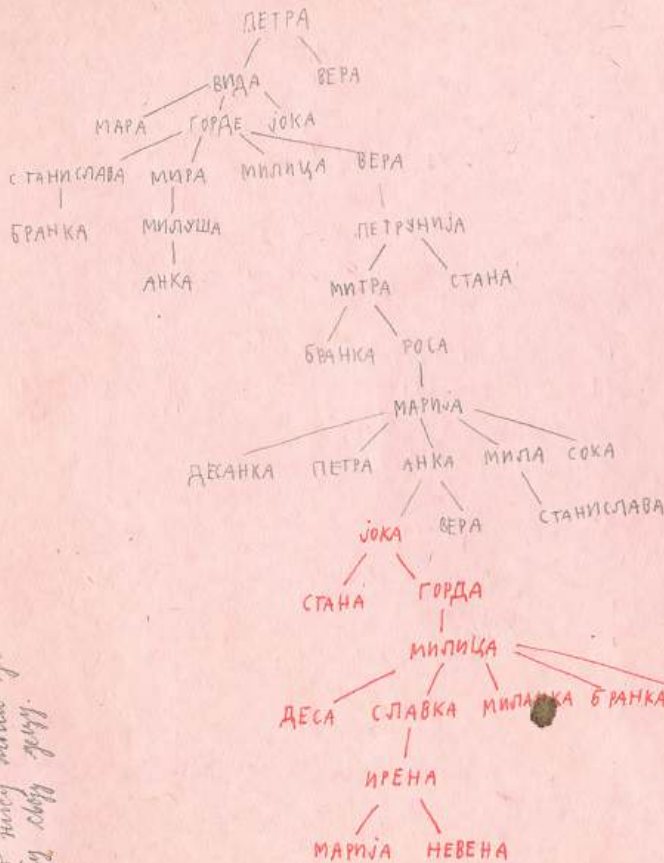 ПЕТРА
ВИДА ВЕРА
МАРА ГОРДЕ ЈОКА
СТАНИСЛАВА МИРА МИЛИЦА ВЕРА
БРАНКА МИЛУША ПЕТРУНИЈА
АНКА МИТРА СТАНА
БРАНКА РОСА
МАРИЈА
ДЕСАНКА ПЕТРА АНКА МИЛА СОКА
ЈОКА ВЕРА СТАНИСЛАВА
СТАНА ГОРДА
МИЛИЦА
ДЕСА СЛАВКА МИЛАНКА БРАНКА
ИРЕНА
МАРИЈА НЕВЕНА